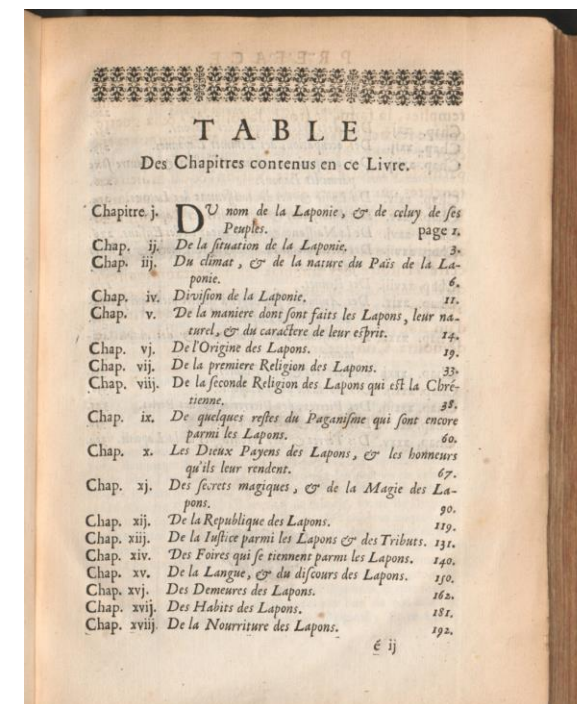 TABLE
Des Chapitres contenus en ce Livre.
Chapitre. j. DU nom de la Laponie, & de celuy de ſes
Peuples. page 1.
Chap. ij. De la ſituation de la Laponie. 3.
Chap. iij. Du climat, & de la nature du Païs de la La-
ponie. 6.
Chap. iv. Diviſion de la Laponie. 11.
Chap. v. De la maniere dont ſont faits les Lapons, leur na-
turel, & du caractere de leur eſprit. 14.
Chap. vj. De l'Origine des Lapons. 19.
Chap. vij. De la premiere Religion des Lapons. 33.
Chap. viij. De la ſeconde Religion des Lapons qui eſt la Chré-
tienne. 38.
Chap. ix. De quelques reſtes du Paganiſme qui ſont encore
parmi les Lapons. 60.
Chap. x. Les Dieux Payens des Lapons, & les honneurs
qu'ils leur rendent. 67.
Chap. xj. Des ſecrets magiques, & de la Magie des La-
pons. 90.
Chap. xij. De la Republique des Lapons. 119.
Chap. xiij. De la Iuſtice parmi les Lapons & des Tributs. 131.
Chap. xiv. Des Foires qui ſe tiennent parmi les Lapons. 140.
Chap. xv. De la Langue, & du diſcours des Lapons. 150.
Chap. xvj. Des Demeures des Lapons. 162.
Chap. xvij. Des Habits des Lapons. 181.
Chap. xviij. De la Nourriture des Lapons. 192.
é ij